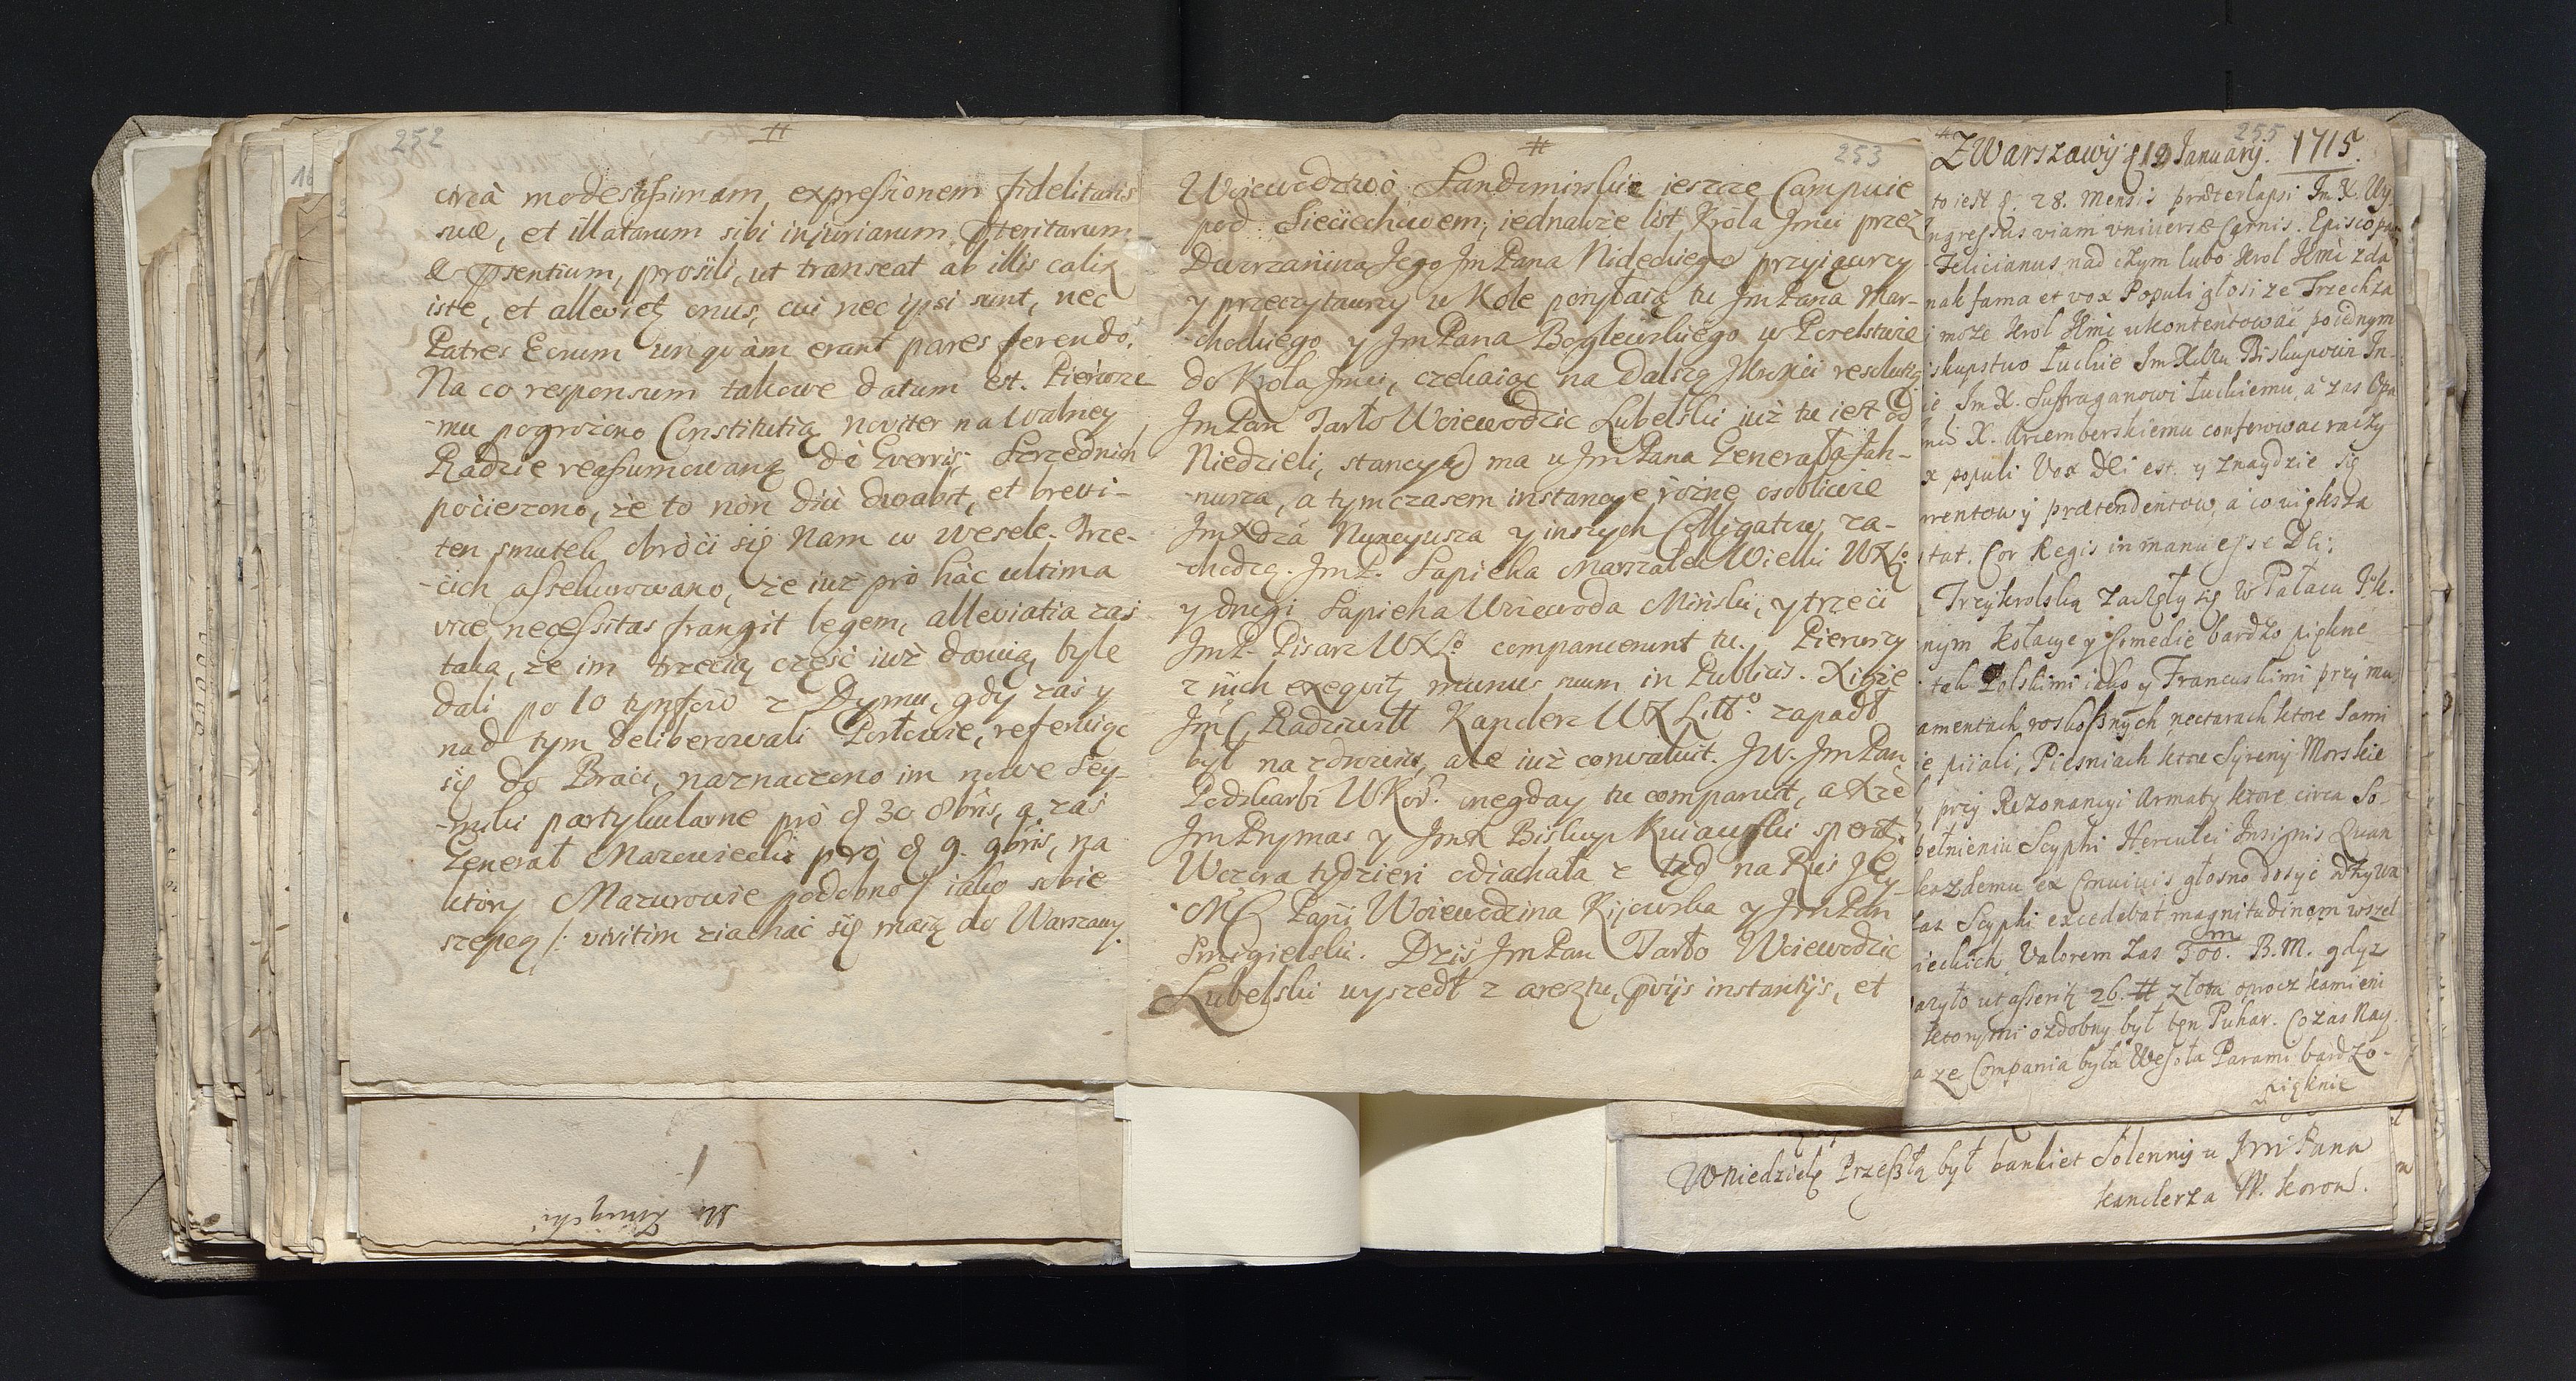 252
#
circà modestissimam expressionem fidelitatis
suæ, et illatarum sibi injuriarum, pteritarum
& psentium, prosili, ut transeat ab illis calix
iste, et alleviet onus, cui nec ipsi sunt, nec
Patres Eorum unquàm erant pares ferendo.
Na co responsum takowe datum est. Pierwsze
-mu pogrożono Constitutią noviter na Walney
Radzie reassumowaną dè Guerris. Srzednich
pocieszono, że to nòn diù durabit, et brevi-
ten smutek obróci się Nam w wesele. Trze-
-cich assekurowano, że iuż prò hàc ultima
vice, necessitas frangit legem, alleviatia zaś
taka, że im trzecią część iuż daruią, byle
dali po 10 tynfów z Dymu, gdy zaś y
nad tym deliberowali Posłowie, referuiąc
się do Braci, naznaczono im nowe Sey-
-miki partykularne prò d 30 8bris, a zaś
Generał Mazowiecki prò d 9. 9bris, na
który Mazurowie podobno /: iako sobie
szepcą /: viritim ziachać się maią do Warszawy.
No
#
253
Woiewodztwo Sandomirskie ieszcze Campuie
pod Sieciechowem, iednakże list Króla Jmci przez
Dworzanina Jego Jm Pana Nideckiego przyiąwszy
y przeczytawszy w Kole posyłaią tu Jm Pana Mar-
-chockiego y Jm Pana Boglewskiego w Poselstwie
do Króla Jmci, czekaiąc na dalszą JKMści resolutią
Jm Pan Tarło Woiewodzic Lubelski iuż tu iest od
Niedzieli, stancyą ma u Jm Pana Generała Jah-
-nusza, a tym czasem instancye różne osobliwie
Jm Xdza Nuncyusza y inszych Colligatów za-
-chodzą. Jm P. Sapieha Marszałek Wielki WXLo
y drugi Sapieha Woiewoda Miński, y trzeci
Jm P. Pisarz WXLo comparuerunt tu. Pierwszy
z nich exequit munus suum in Publicis. Xiąże
JmC Radziwiłł Kanclerz WXLitto zapadł
był na zdrowiu, ale iuż convaluit. JW. Jm Pan
Podskarbi WKor. onegday tu comparuit, a Xże
Jm Prymas y Jm X Biskup Kuiawski sperat.
Wczora tydzień odiachała z tąd na Ruś JEy
MC Pani Woiewodzina Kijowska y Jm Pan
Smigielski. Dziś Jm Pan Tarło Woiewodzic
Lubelski wyszedł z aresztu, pvijs instantijs, et
255
Z Warszawy d 12 January. 1715.
to iest d. 28. Mensis præterlapsi Jm X. Wy
ngressus viam vniversæ Carnis. Episcopus
Felicianus, nad czym lubo Krol JKmć zda
nak fama et vox Populi głosi ze Trzech za
może Krol JKmć ukontentować poiednym
iskupstwo Łuckie Jm Xdzu Biskupowi In-
ie Jm X. Suffraganowi Łuckiemu, a zas Opa
X. Krzemberskiemu conferowac raczy
x populi Vox Dei est. y znaydzie się
rrentow y prætendentow, a co większa
stat. Cor Regis in manu esse Dei.
Trzykrolską zaczęły się w Pałacu JK.
nym kolacye y Comedie bardzo piękne
tak Polskimi iako y Francuskimi przy mu
amentach roskoßnych nectarach ktore sami
ie piiali, Piesniach ktore Syreny Morskie
przy Rezonancyi Armaty ktore circa So-
pełnieniu Scyphi Herculei Insignis Quan
każdemu ex Convivis głosno dosyć odzywa
zas Scyphi excedebat magnitudinem wszel
ieckich, Valorem zas 300. B.M. gdyz
m
azyło ut asserit 26. # złota oprocz kamieni
ktorymi ozdobny był ten Puhar. Co zas Nay
a ze Compania była Wesoła Parami bardzo-
pięknie
W Niedzielę Przeßłą był bankiet Solenny u Jmć Pana
Kanclerza W. Koron.